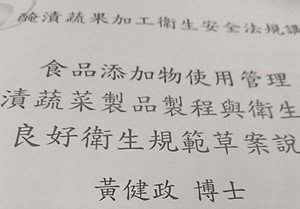 醃漬蔬果加工衛生安全法規講
食品添加物使用管理
漬蔬菜製品製程與衛生
良好衛生規範草案說
黃健政 博士